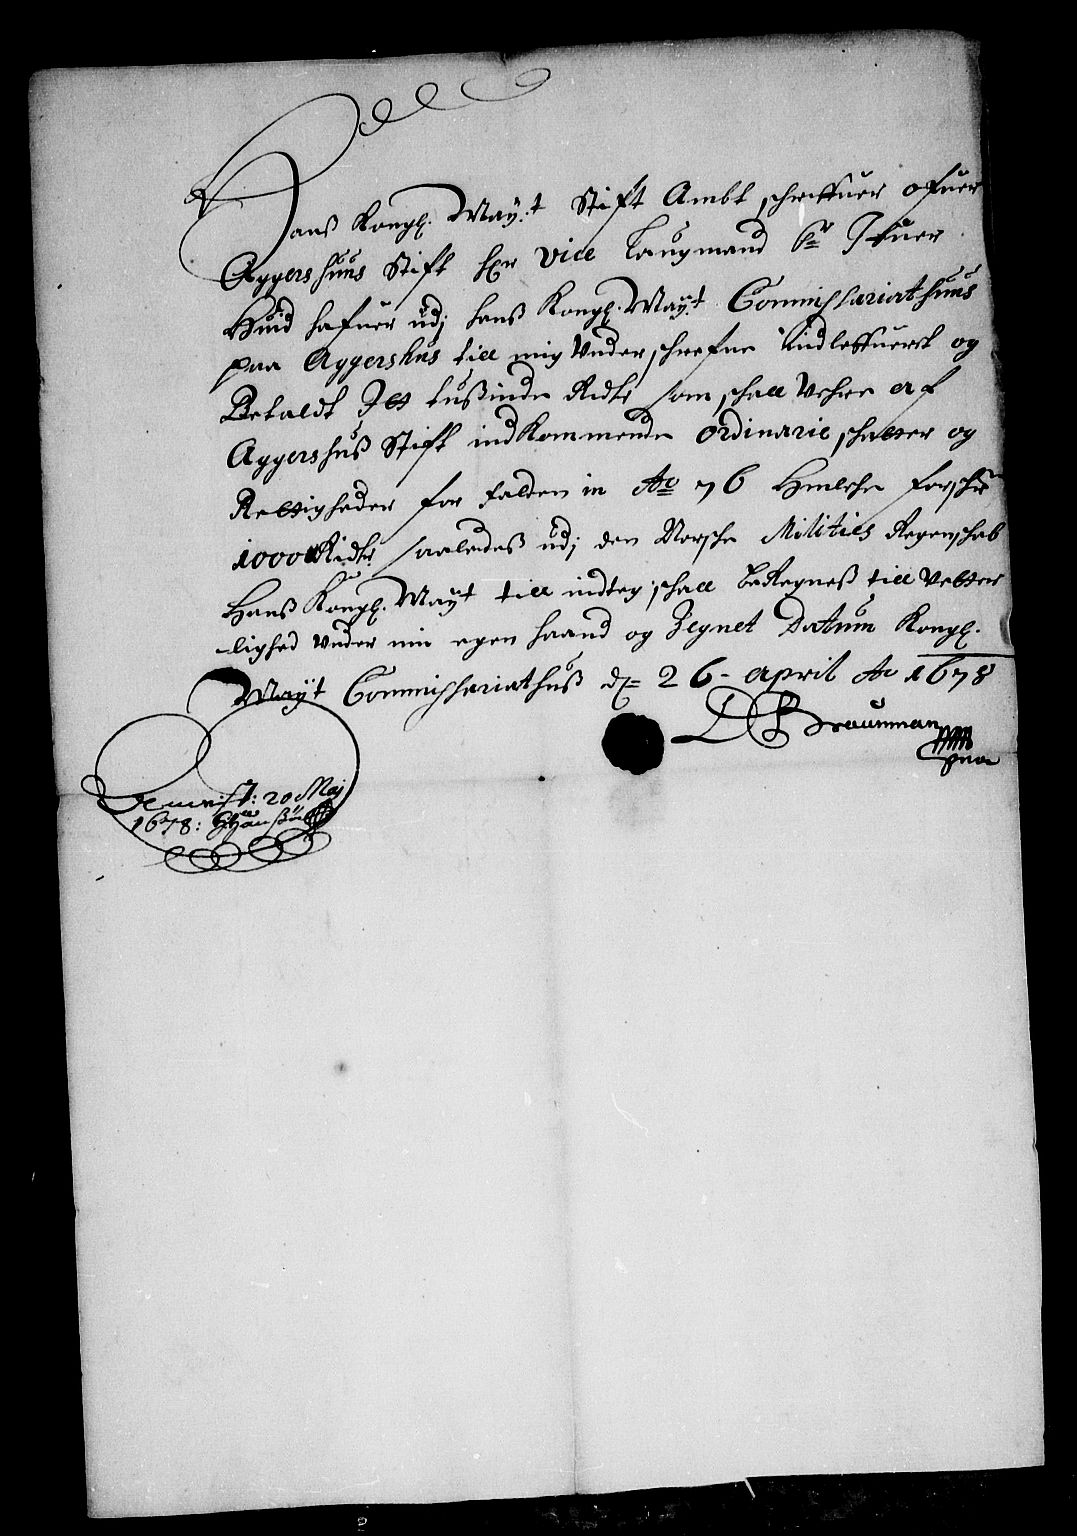 Hans Kongl. May:t Stift Ambt schriffuer ofuer
Aggershuus Stift her Vice Laugmand Sr Ifuer
Huid hafuer udj hans Kongl. May:t Commissariathuus
paa Aggershus till mig Under schrefne indleffuert og
Betaldt Itt tusinde Rdlr som schall Vehre af
Aggershuß Stift indkommende ordinarie schatter og
Rettigheder for falden in Ao 76 Huilche forschr:
1000 Ridlr saaledeß udj den Norsche Milities Regenschab
Hanß Kongl. Mayt till indteg schall beRegneß till Vitter
lighed Under min egen haand og Zegnet Datum Kongl.
Mayt Commissariathuß d= 26 - april Ao 1678
D Braunman
20 Maj
1678: